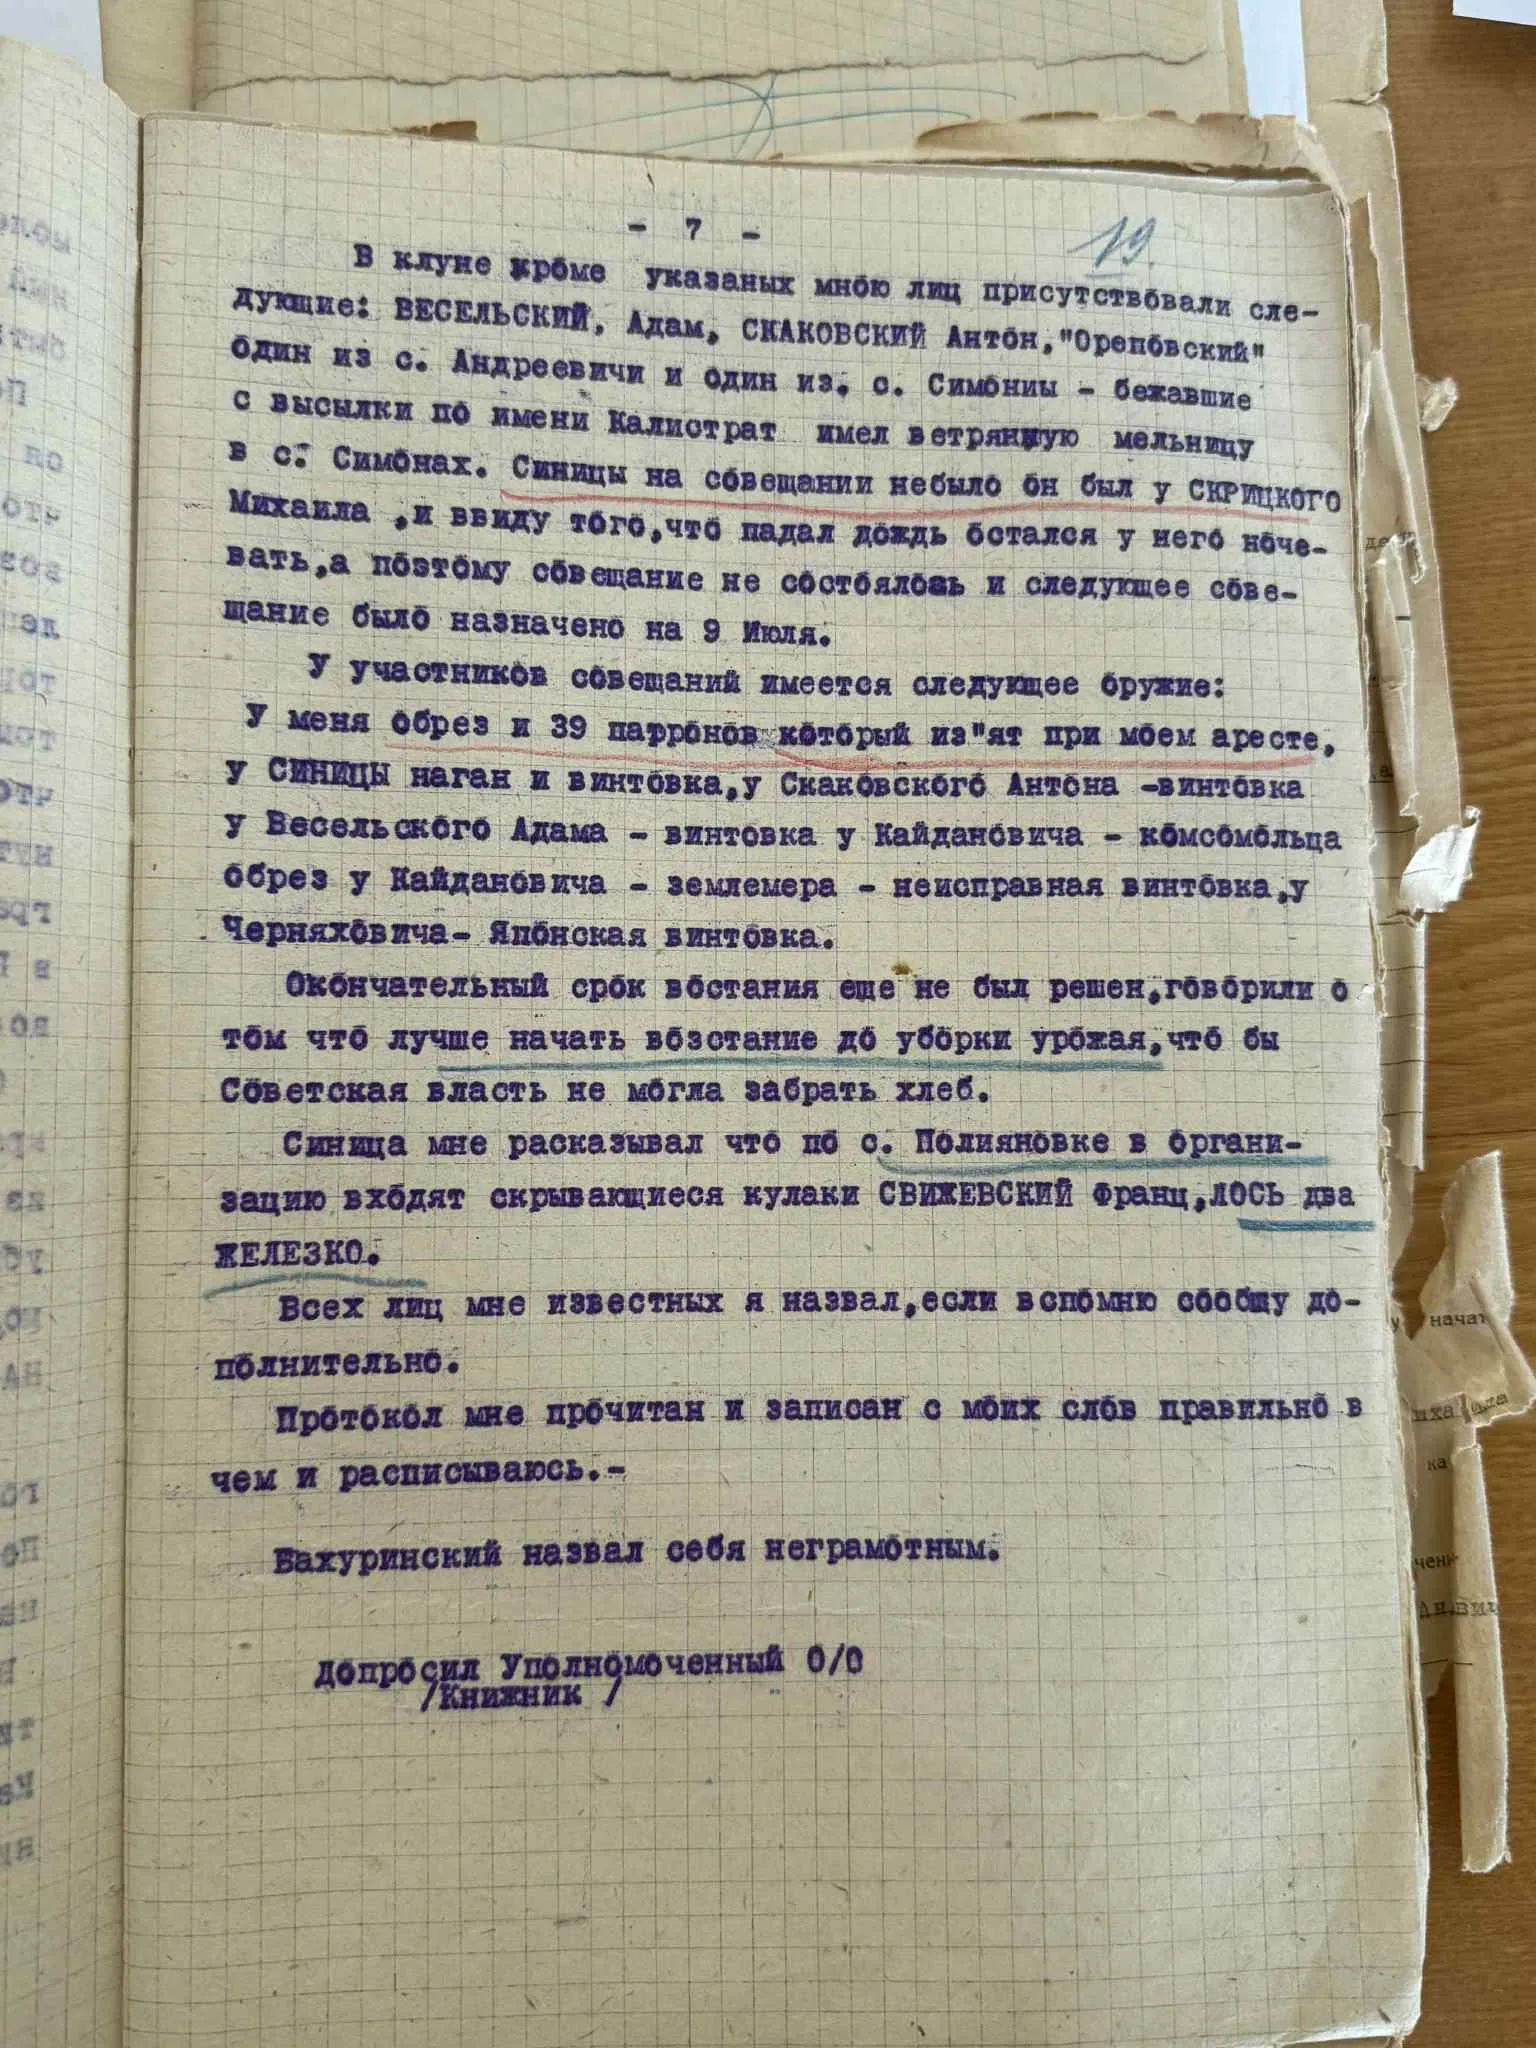 - 7 -
19.
В клуне кроме указаных мною лиц присутствовали сле-
дующие: ВЕСЕЛЬСКИЙ, Адам, СКАКОВСКИЙ Антон, "Ореповский"
один из с. Андреевичи и один из. с. Симониы - бежавшие
с высылки по имени Калистрат имел ветряную мельницу
в с. Симонах. Синицы на совещании небыло он был у СКРИЦКОГО
Михаила ,и ввиду того,что падал дождь остался у него ноче-
вать,а поэтому совещание не состоялось и следующее сове-
щание было назначено на 9 Июля.
У участников совещаний имеется следующее оружие:
У меня обрез и 39 патронов который из"ят при моем аресте,
у СИНИЦЫ наган и винтовка,у Скаковского Антона -винтовка
у Весельского Адама - винтовка у Кайдановича - комсомольца
обрез у Кайдановича - землемера - неисправная винтовка,у
Черняховича- Японская винтовка.
Окончательный срок востания еще не был решен,говорили о
том что лучше начать возстание до уборки урожая,что бы
Советская власть не могла забрать хлеб.
Синица мне расказывал что по с. Полияновке в органи-
зацию входят скрывающиеся кулаки СВИЖЕВСКИЙ Франц,ЛОСЬ два
ЖЕЛЕЗКО.
Всех лиц мне известных я назвал,если вспомню сообщу до-
полнительно.
Протокол мне прочитан и записан с моих слов правильно в
чем и расписываюсь.-
Бахуринский назвал себя неграмотным.
допросил Уполномоченный О/О
/Книжник /